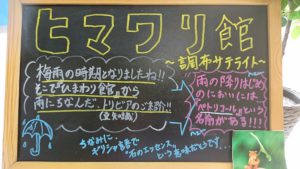 ヒマワリ館
～調布サテライト～
梅雨の時期となりましたね!!
そこで"ひまわり食官"から
雨にちなんだ、トリビアのご紹介!!
(豆知識)
雨の降りはじめ
のにおいには
"ペトリコール"という
名前がある!!!
ちなみに、
ギリシャ語で
"石のエッセンス"
という意味だそうです…